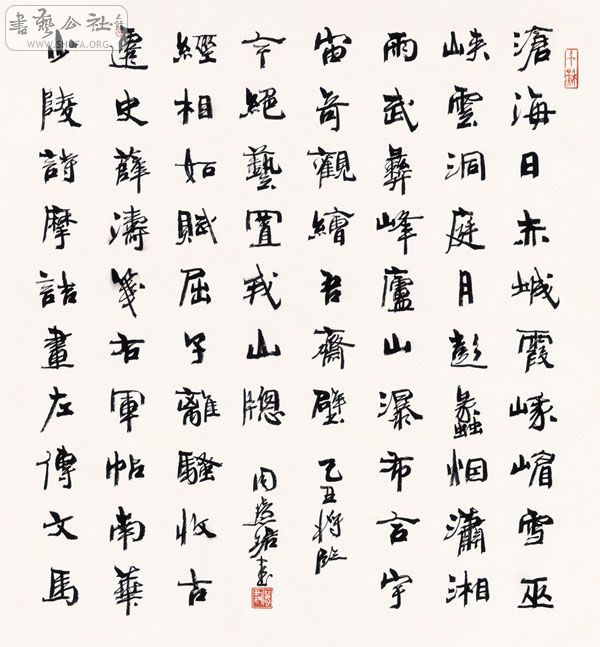 滄海日赤城霞峨嵋雪巫
峽雲洞庭月彭蠡烟瀟湘
雨武彝峰廬山瀑布合宇
宙奇觀繪吾齋壁
乙丑將臨
少陵詩摩詰畫左傳文馬
遷史薛濤箋右軍帖南華
經相如賦屈子離騷收古
今絕藝置我山牕
周慧珺書
書藝公社
WWW.SHUFA.ORG